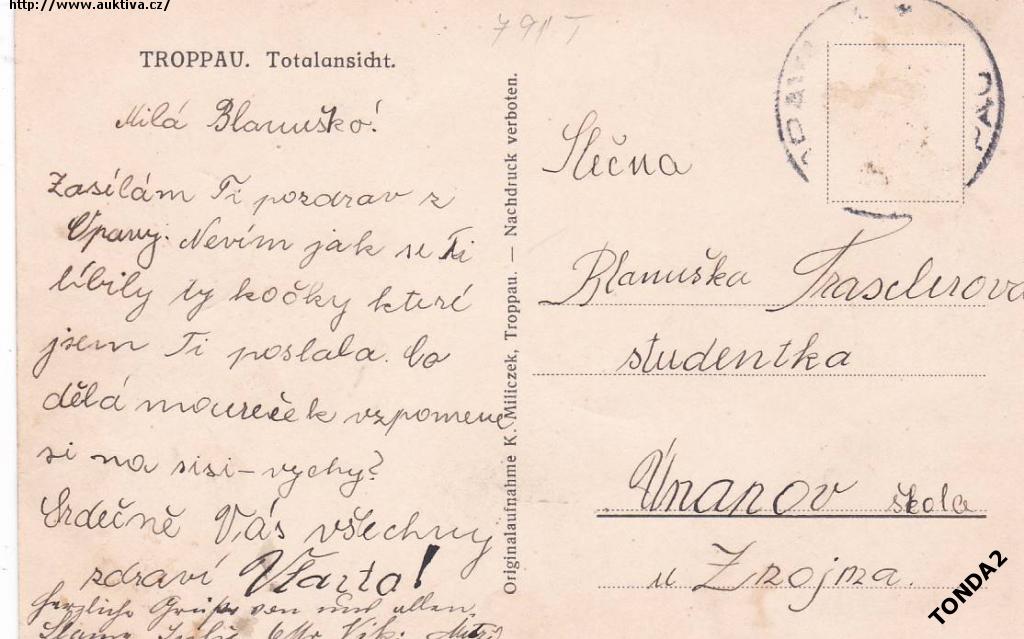 http://www.auktiva.cz/
791 T
TROPPAU. Totalansicht.
Milá Blanuško!
Zasílám Ti pozdrav z
Opavy. Nevím jak se Ti
líbily ty kočky které
jsem Ti poslala. Co
dělá moureček vzpomene
si na sisi-vychy?
Srdečně Vás všechny
zdraví Vlasta!
herzliche Grüße von uns allen
Originalaufnahme K. Miliczek, Troppau. — Nachdruck verboten.
Slečna
Blanuška
studentka
Únanov škola
u Znojma.
TONDA2